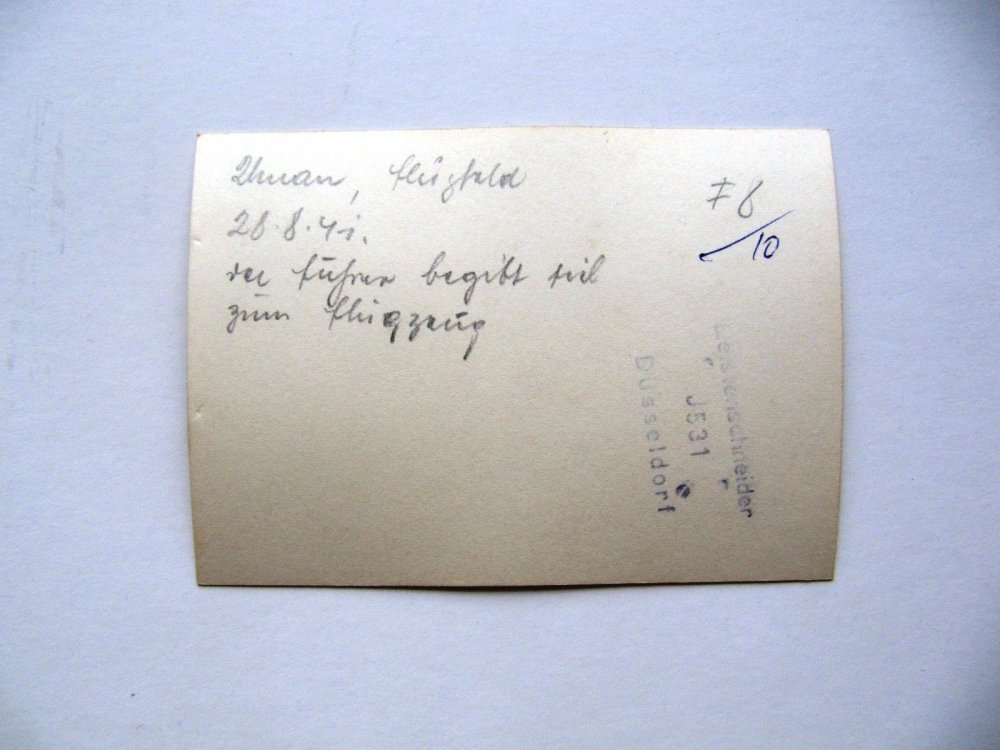 Uman, Flugfeld
28.8.41.
der Führer begibt sich
zum Flugzeug
F 8
/10
Leistenschneider
J531
Düsseldorf